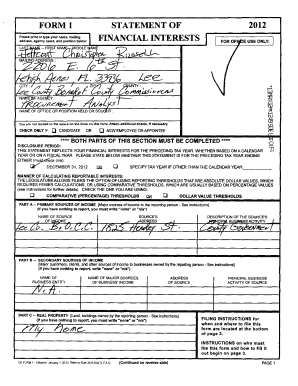 FORM 1 STATEMENT OF 2012
Please print or type your name, mailing address, agency name, and position below: FINANCIAL INTERESTS
FOR OFFICE USE ONLY:
LAST NAME -- FIRST NAME -- MIDDLE NAME
Christopher
MAILING ADDRESS
2206 E. 6th St
Lehigh Acres FL. Lee
CITY ZIP COUNTY
Lee County Board of County Commissioners
NAME OF AGENCY
Procurement Analyst
NAME OF OFFICE OR POSITION HELD OR SOUGHT
You are not limited to the space on the lines on this form. Attach additional sheets, if necessary.
CHECK ONLY IF CANDIDATE OR NEW EMPLOYEE OR APPOINTEE
**** BOTH PARTS OF THIS SECTION MUST BE COMPLETED ****
DISCLOSURE PERIOD:
THIS STATEMENT REFLECTS YOUR FINANCIAL INTERESTS FOR THE PRECEDING TAX YEAR, WHETHER BASED ON A CALENDAR
YEAR OR ON A FISCAL YEAR. PLEASE STATE BELOW WHETHER THIS STATEMENT IS FOR THE PRECEDING TAX YEAR ENDING
EITHER (must check one):
DECEMBER 31, 2012 OR SPECIFY TAX YEAR IF OTHER THAN THE CALENDAR YEAR:
MANNER OF CALCULATING REPORTABLE INTERESTS:
THE LEGISLATURE ALLOWS FILERS THE OPTION OF USING REPORTING THRESHOLDS THAT ARE ABSOLUTE DOLLAR VALUES, WHICH
REQUIRES FEWER CALCULATIONS, OR USING COMPARATIVE THRESHOLDS, WHICH ARE USUALLY BASED ON PERCENTAGE VALUES
(see instructions for further details). CHECK THE ONE YOU ARE USING:
COMPARATIVE (PERCENTAGE) THRESHOLDS OR DOLLAR VALUE THRESHOLDS
PART A -- PRIMARY SOURCES OF INCOME [Major sources of income to the reporting person - See instructions]
(If you have nothing to report, you must write "none" or "n/a")
NAME OF SOURCE OF INCOME SOURCE'S ADDRESS DESCRIPTION OF THE SOURCE'S PRINCIPAL BUSINESS ACTIVITY
Lee Co. B.O.C.C. 1825 Hendry St. County Government
PART B -- SECONDARY SOURCES OF INCOME
[Major customers, clients, and other sources of income to businesses owned by the reporting person - See instructions]
(If you have nothing to report, you must write "none" or "n/a")
NAME OF BUSINESS ENTITY NAME OF MAJOR SOURCES OF BUSINESS' INCOME ADDRESS OF SOURCE PRINCIPAL BUSINESS ACTIVITY OF SOURCE
N.A.
PART C -- REAL PROPERTY [Land, buildings owned by the reporting person - See instructions]
(If you have nothing to report, you must write "none" or "n/a")
My home
FILING INSTRUCTIONS for
when and where to file this
form are located at the bottom
of page 2.
INSTRUCTIONS on who must
file this form and how to fill it
out begin on page 3.
CE FORM 1 - Effective: January 1, 2013. (Continued on reverse side) PAGE 1